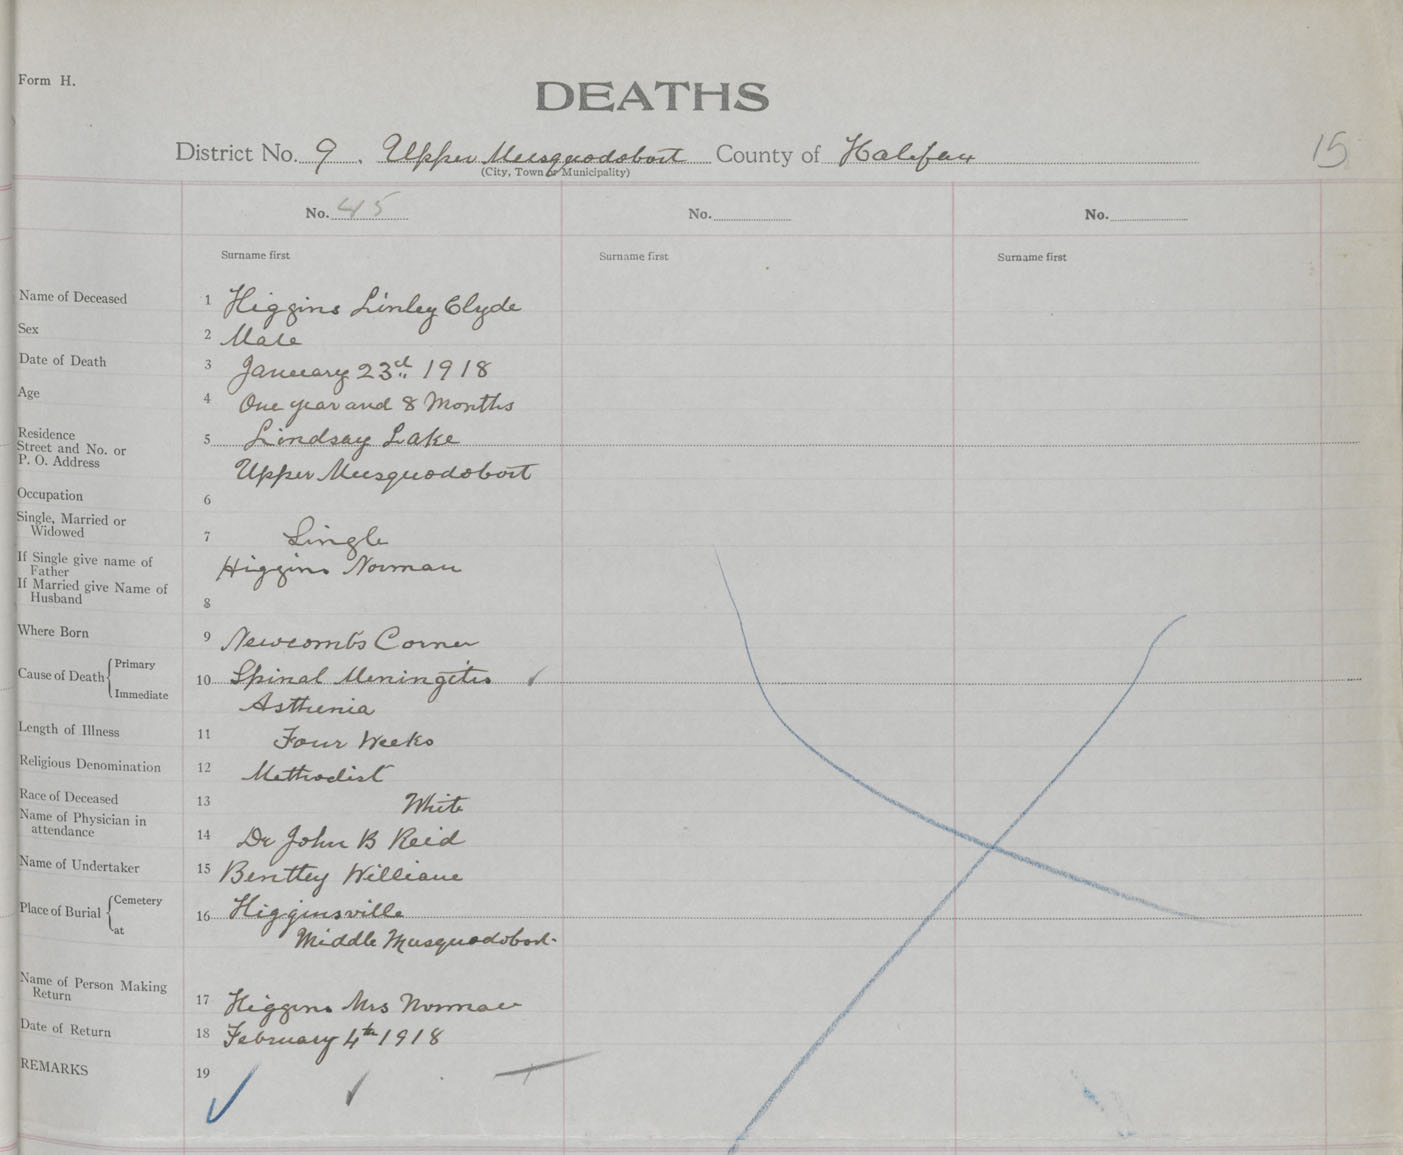 Form H.
DEATHS
District No. 9. Upper Musquodoboit County of Halifax
(City, Town or Municipality)
15
No. 45 No. No.
Surname first Surname first Surname first
Name of Deceased 1 Higgins Linley Clyde
Sex 2 Male
Date of Death 3 January 23rd 1918
Age 4 One year and 8 Months
Residence
Street and No. or
P. O. Address
5 Lindsay Lake
Upper Musquodoboit
Occupation 6
Single, Married or
Widowed
7 Single
If Single give name of
Father
Higgins Norman
If Married give Name of
Husband
8
Where Born 9 Newcombs Corner
Cause of Death Primary
Immediate
10 Spinal Meningitis
Asthenia
Length of Illness 11 Four Weeks
Religious Denomination 12 Methodist
Race of Deceased 13 White
Name of Physician in
attendance
14 Dr John B Reid
Name of Undertaker 15 Bentley William
Place of Burial Cemetery
at
16 Higginsville
Middle Musquodoboit
Name of Person Making
Return
17 Higgins Mrs Norman
Date of Return 18 February 4th 1918
REMARKS 19